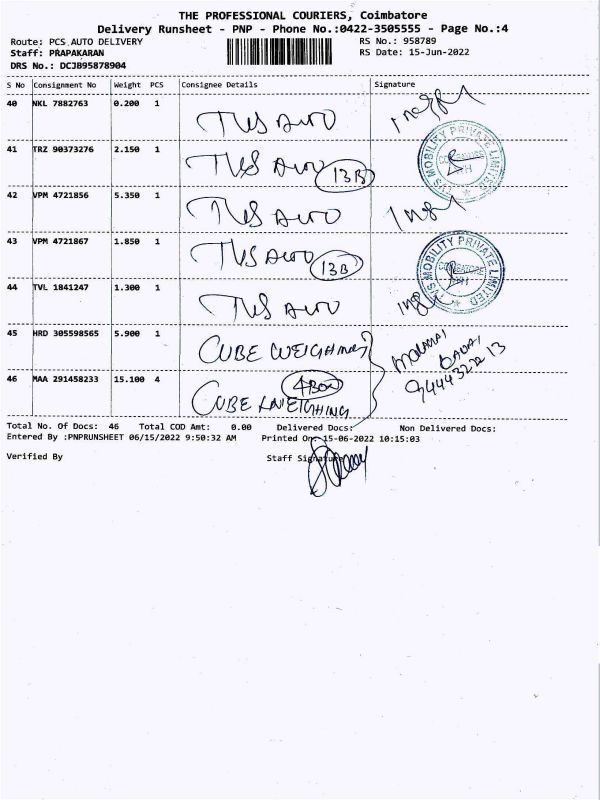 THE PROFESSIONAL COURIERS, Coimbatore
Delivery Runsheet - PNP - Phone No.:0422-3505555 - Page No.:4
Route: PCS AUTO DELIVERY RS No.: 958789
Staff: PRAPAKARAN RS Date: 15-Jun-2022
DRS No.: DCJB95878904
S No Consignment No Weight PCS Consignee Details Signature
40 NKL 7882763 0.200 1 TVS AUTO
41 TRZ 90373276 2.150 1 TVS AUTO 13B
TVS MOBILITY PRIVATE LIMITED
COIMBATORE
42 VPM 4721856 5.350 1 TVS AUTO
43 VPM 4721867 1.850 1 TVS AUTO 13B
TVS MOBILITY PRIVATE LIMITED
COIMBATORE
44 TVL 1841247 1.300 1 TVS AUTO
45 HRD 305598565 5.900 1 CUBE WEIGHING
46 MAA 291458233 15.100 4 4 Box
CUBE WEIGHING
Total No. Of Docs: 46 Total COD Amt: 0.00 Delivered Docs: Non Delivered Docs:
Entered By :PNPRUNSHEET 06/15/2022 9:50:32 AM Printed On: 15-06-2022 10:15:03
Verified By Staff Signature